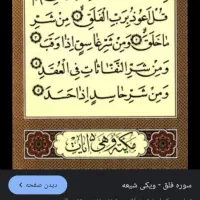 قُلْ أَعُوذُ بِرَبِّ الْفَلَقِ ۝ مِنْ شَرِّ
مَا خَلَقَ ۝ وَمِنْ شَرِّ غَاسِقٍ إِذَا وَقَبَ ۝
وَمِنْ شَرِّ النَّفَّاثَاتِ فِي الْعُقَدِ ۝
وَمِنْ شَرِّ حَاسِدٍ إِذَا حَسَدَ ۝
مكية وهي آيات
سوره فلق - ویکی شیعه
دیدن صفحه